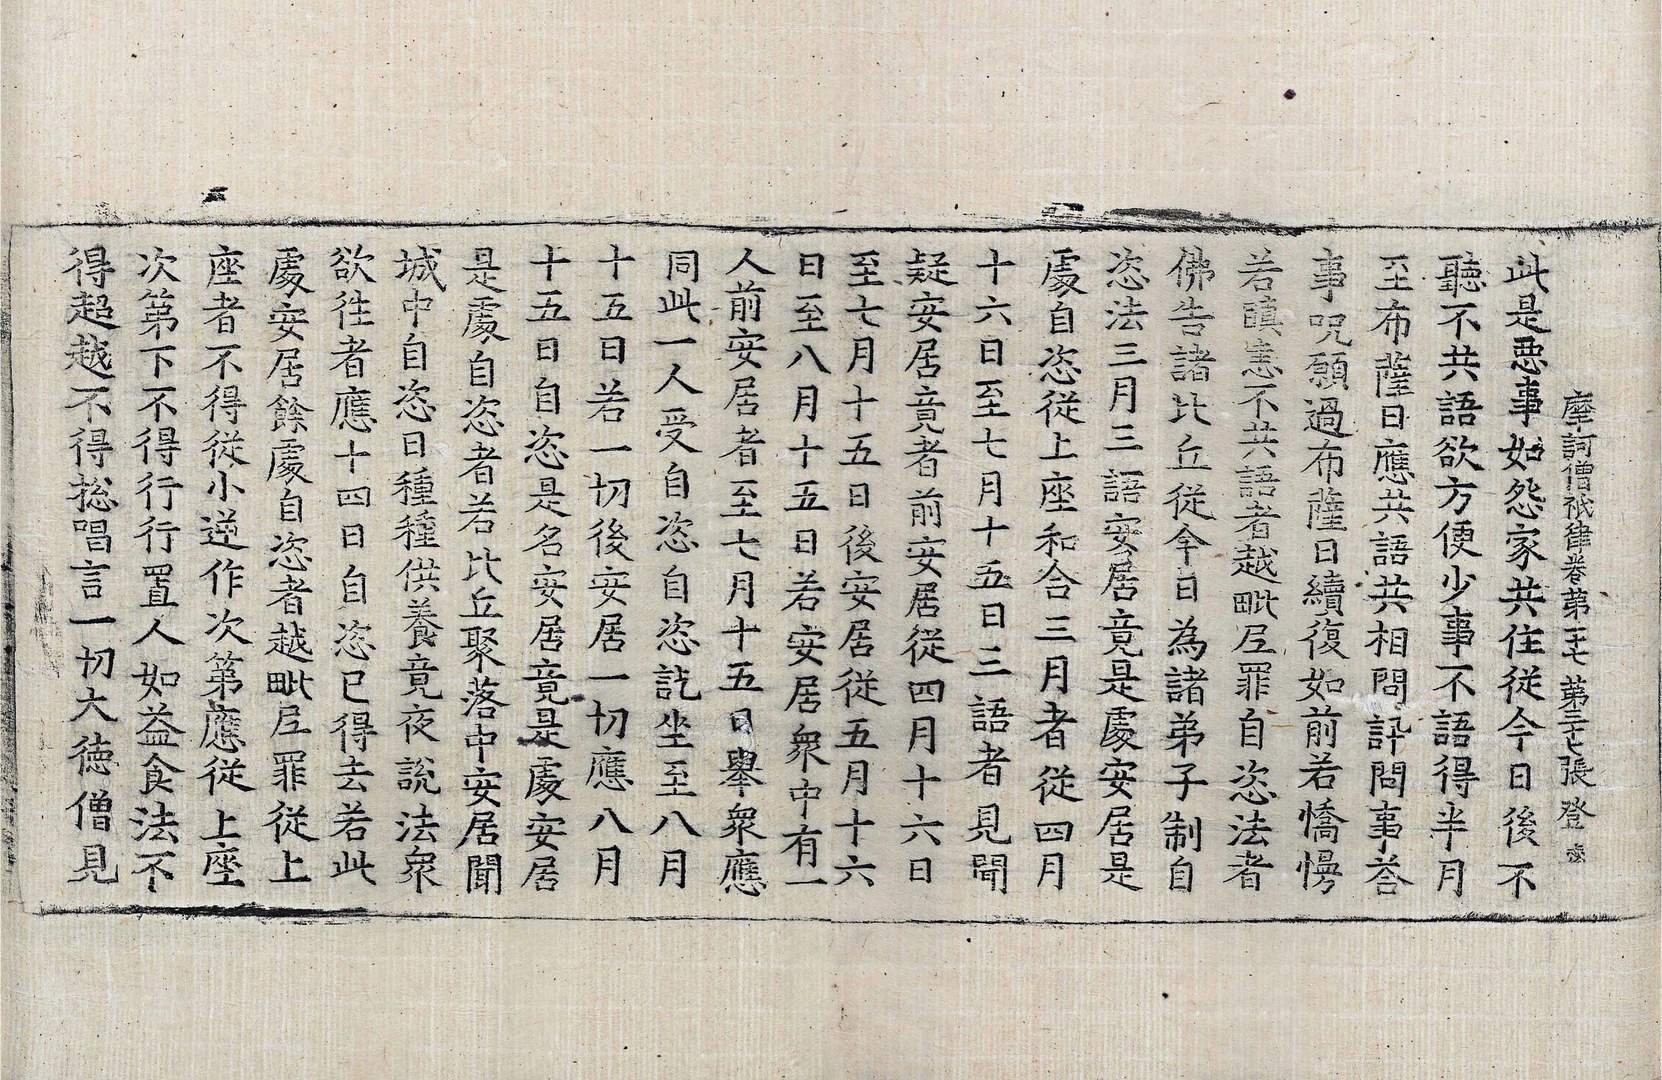 摩訶僧祇律卷第二十七 第三十七張 登
此是惡事如怨家共住從今日後不
聽不共語欲方便少事不語得半月
至布薩日應共語共相問訊問事荅
事呪願過布薩日續復如前若憍慢
若瞋恚不共語者越毗尼罪自恣法者
佛告諸比丘從今日為諸弟子制自
恣法三月三語安居竟是處安居是
處自恣從上座和合三月者從四月
十六日至七月十五日三語者見聞
疑安居竟者前安居從四月十六日
至七月十五日後安居從五月十六
日至八月十五日若安居衆中有一
人前安居者至七月十五日舉衆應
同此一人受自恣自恣訖坐至八月
十五日若一切後安居一切應八月
十五日自恣是名安居竟是處安居
是處自恣者若比丘聚落中安居聞
城中自恣日種種供養竟夜說法衆
欲往者應十四日自恣已得去若此
處安居餘處自恣者越毗尼罪從上
座者不得從小逆作次第應從上座
次第下不得行行置人如益食法不
得超越不得捴唱言一切大德僧見